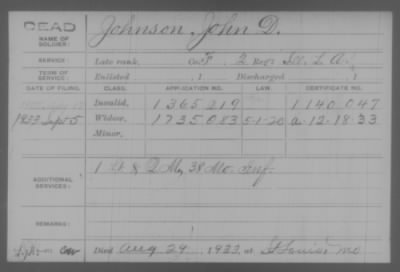 DEAD
NAME OF SOLDIER: Johnson, John D.
SERVICE: Late rank, Co. F, 2 Reg't Ill. L. A.
TERM OF SERVICE: Enlisted , 1 Discharged , 1
DATE OF FILING. CLASS. APPLICATION NO. LAW. CERTIFICATE NO.
Invalid, 1365219 1140047
1933 Sept 5 Widow, 1735083 5-1-20 a-12-18-33
Minor,
ADDITIONAL SERVICES: 1 Lt & Q.M., 38 Mo. Inf.
REMARKS:
Died Aug 29, 1933, at St Louis Mo